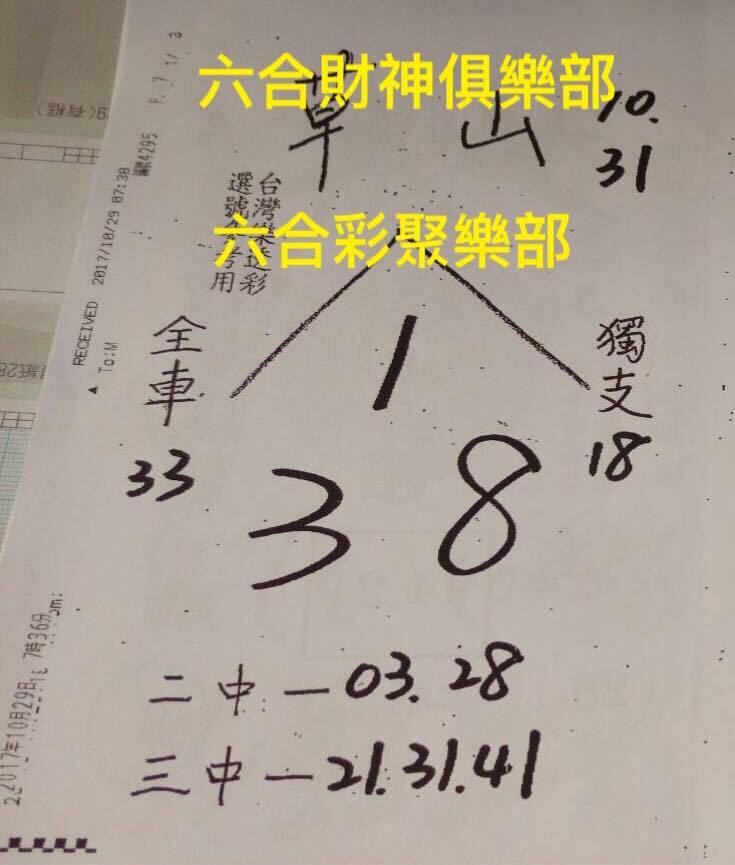 六合財神俱樂部
草山
10.
31
台灣樂透彩
選號參考用
六合彩聚樂部
全車
獨支
1
33
18
3 8
二中－03.28
三中－21.31.41
RECEIVED 2017/10/29 07:38
To:M
4295 P. 7 1/ 3
2017年10月29日 7時36分
(有框)